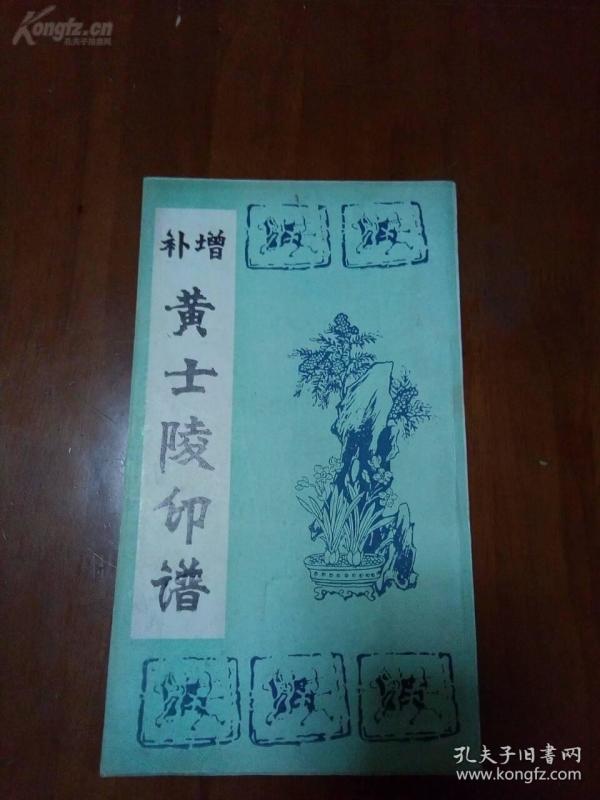 Kongfz.cn
孔夫子旧书网
增补
黄士陵印谱
孔夫子旧书网
www.kongfz.com